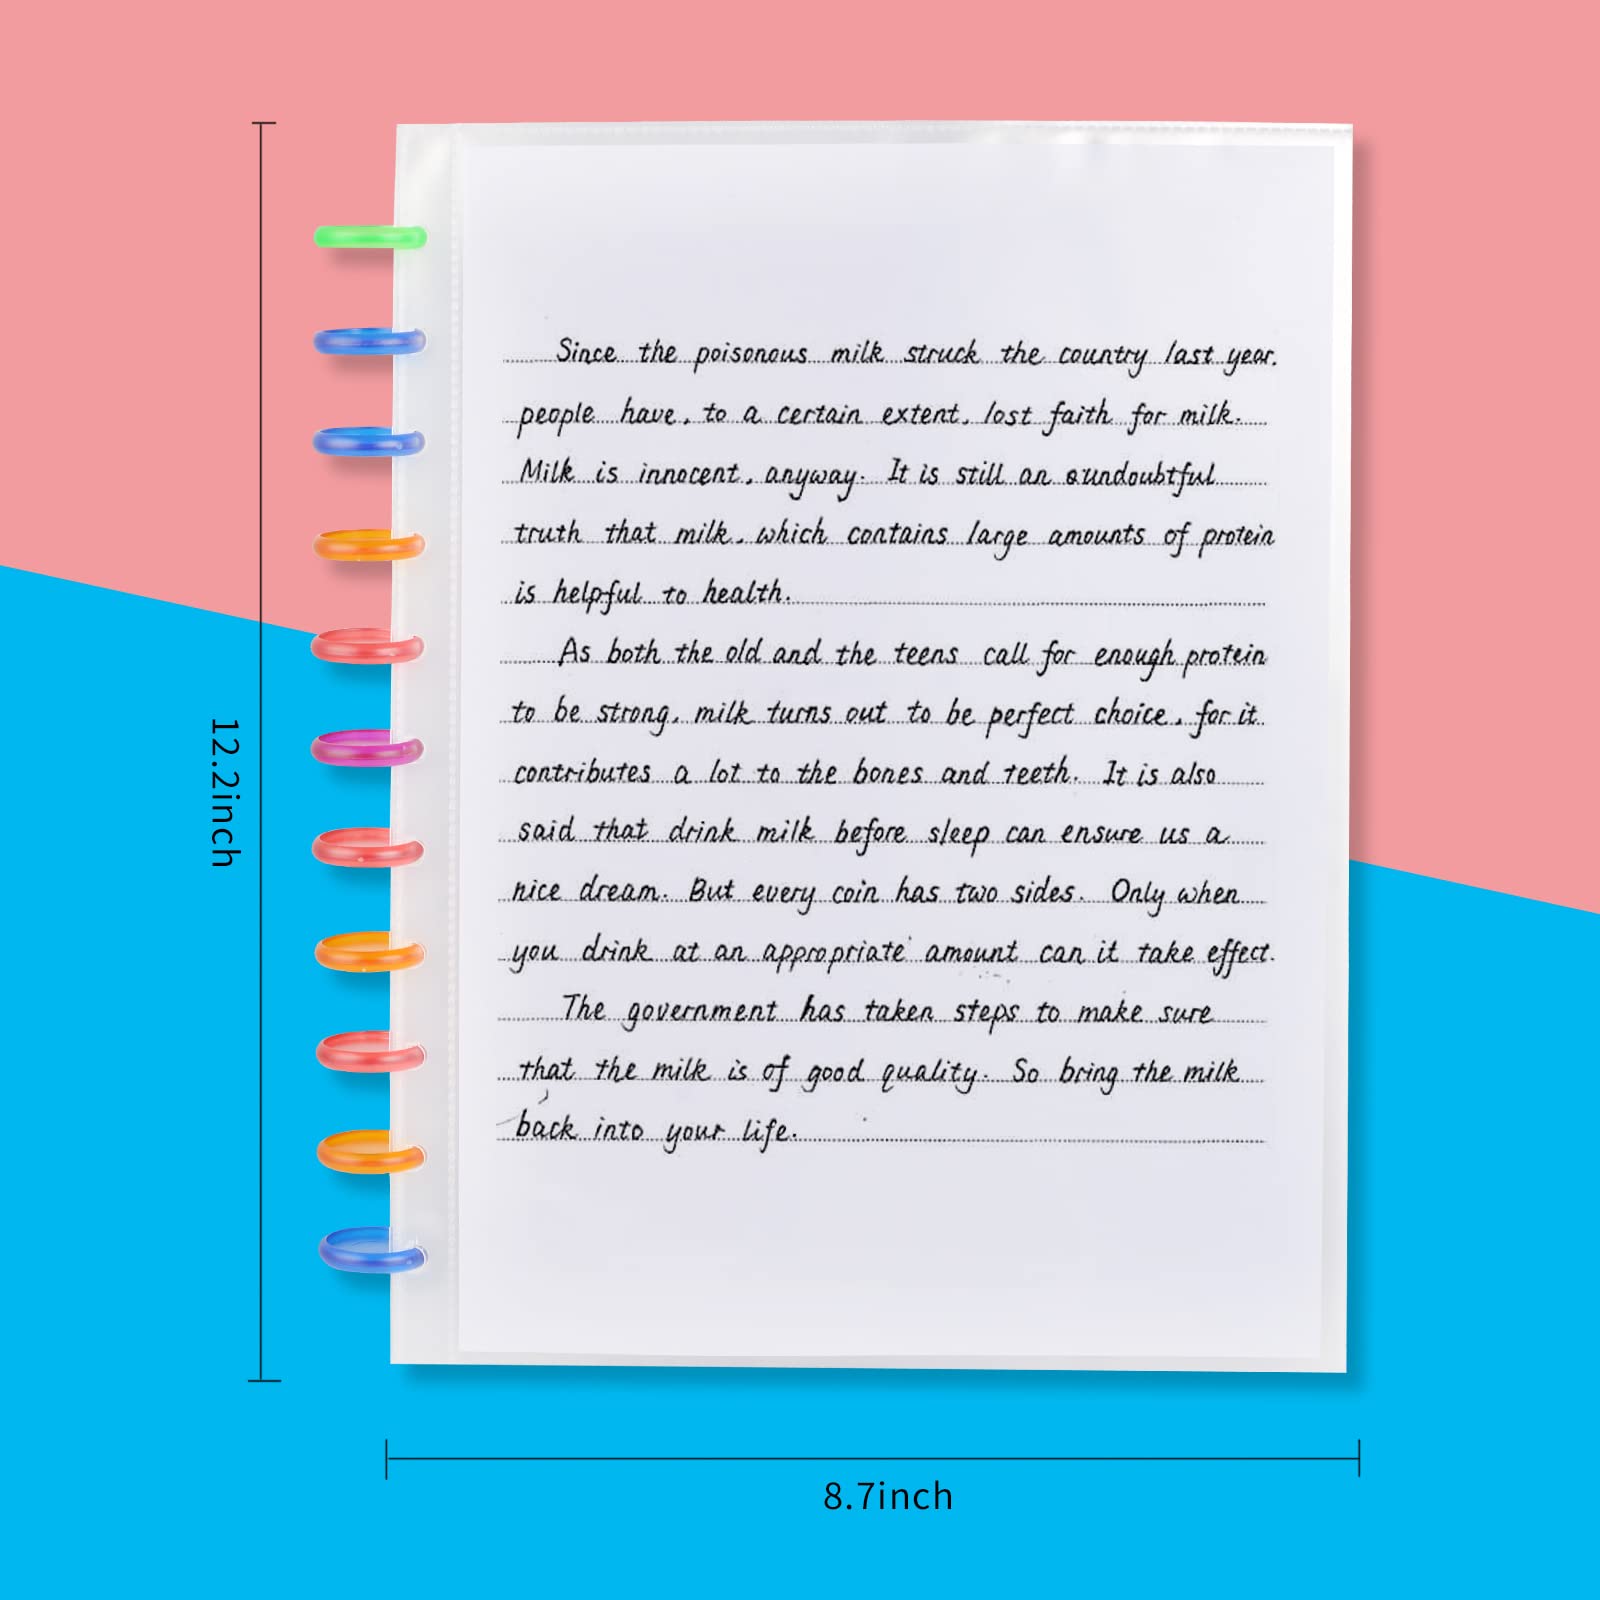 Since the poisonous milk struck the country last year.
people have, to a certain extent, lost faith for milk.
Milk is innocent, anyway. It is still an undoubtful
truth that milk, which contains large amounts of protein
is helpful to health.
As both the old and the teens call for enough protein
to be strong, milk turns out to be perfect choice, for it
contributes a lot to the bones and teeth. It is also
said that drink milk before sleep can ensure us a
nice dream. But every coin has two sides. Only when
you drink at an appropriate amount can it take effect.
The government has taken steps to make sure
that the milk is of good quality. So bring the milk
back into your life.
12.2inch
8.7inch